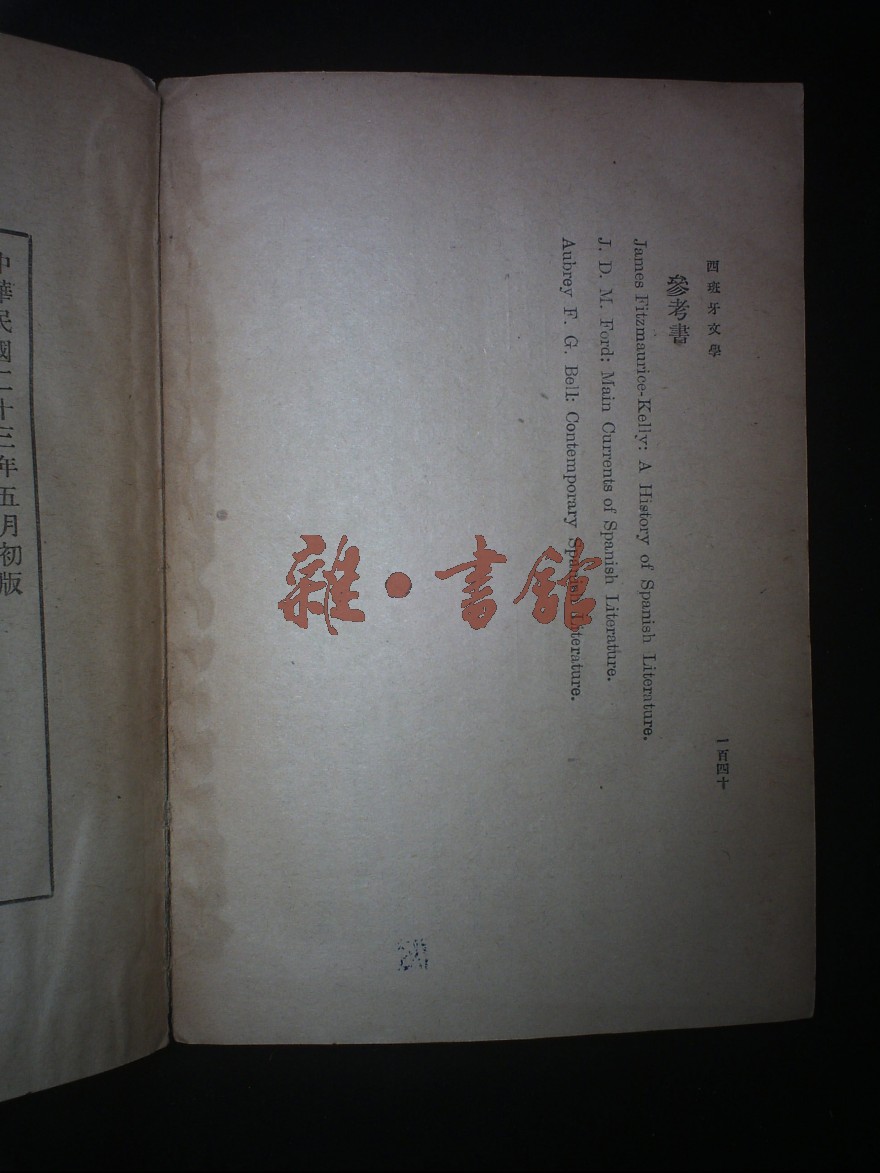 西班牙文學
一百四十
參考書
James Fitzmaurice-Kelly: A History of Spanish Literature.
J. D. M. Ford: Main Currents of Spanish Literature.
Aubrey F. G. Bell: Contemporary Spanish Literature.
雜·書館
中華民國二十三年五月初版